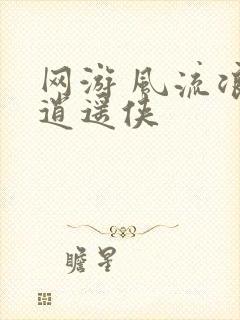 网游风流浪
逍遥侠
瞻星